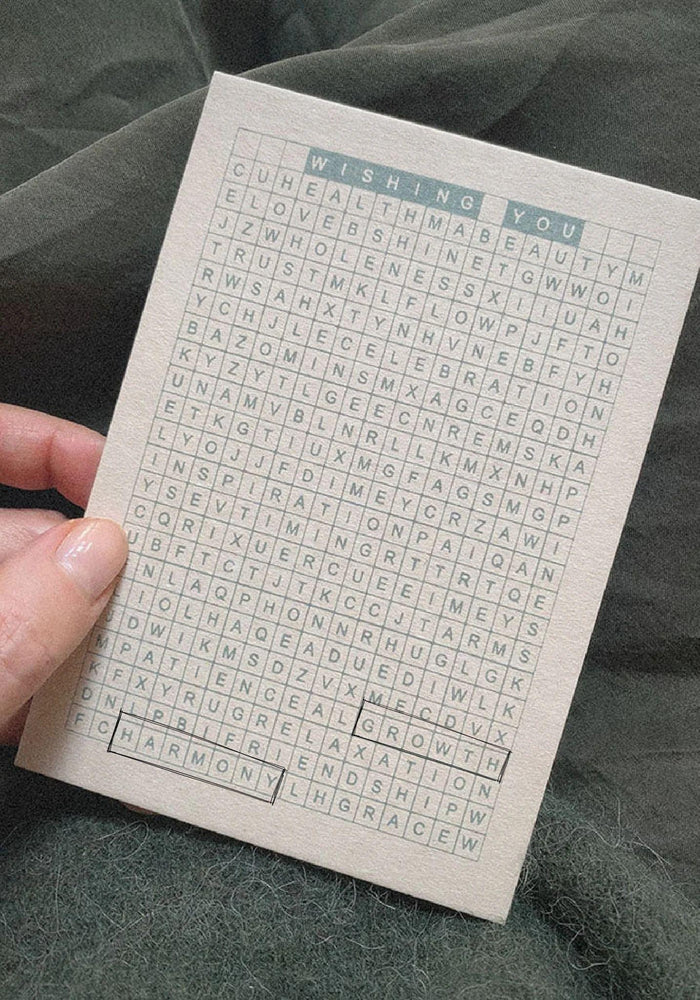 WISHING YOU
CUHEALTHMABEAUTYM
ELOVEBSHINETGWWOI
JZWHOLENESSXIIUAH
TRUSTMKLFLOWPJFTO
RWSAHXTYNHVNEBFYH
YCHJLECELEBRATION
BAZOMINSMXAGCEQDH
KYZYTLGEECNREMSKA
UNAMVBLNRLLKMXNHP
ETKGTIUXMGFAGSMGP
LYOJJFDIMEYCRZAWI
INSPIRATIONPAIQAN
YSEVTIMINGRTTRTQE
CQRIXUERCUEEIMEYS
UBFTCTJTKCCJTARMS
NLAQPHONNRHUGLGK
IOLHAQEADUEDIWLK
DWIKMSDZVXMECDVX
MPATIENCEALGROWTH
KFXYRUGRELAXATION
DNIPBIFRIENDSHIPW
FCHARMONYLHGRACEW